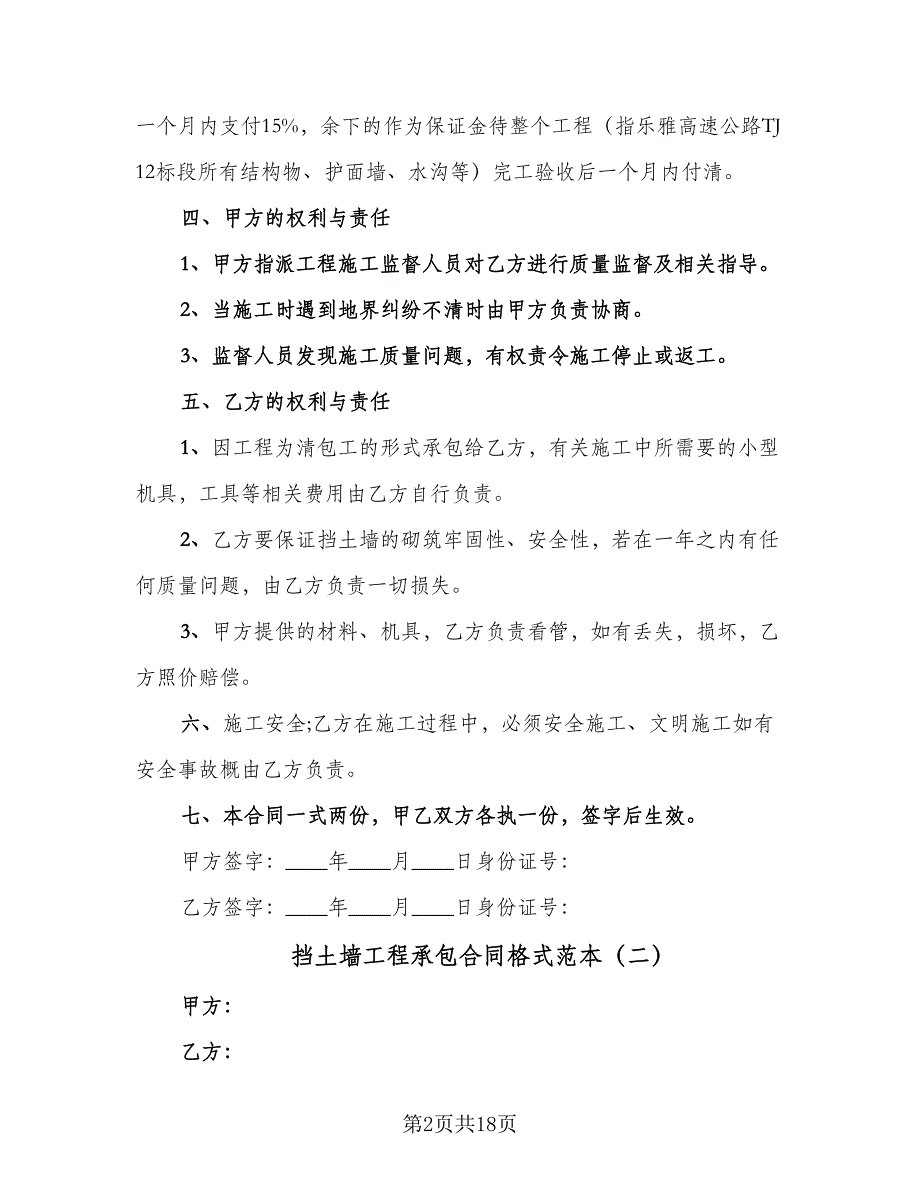 一个月内支付15%，余下的作为保证金待整个工程（指乐雅高速公路TJ
12标段所有结构物、护面墙、水沟等）完工验收后一个月内付清。
四、甲方的权利与责任
1、甲方指派工程施工监督人员对乙方进行质量监督及相关指导。
2、当施工时遇到地界纠纷不清时由甲方负责协商。
3、监督人员发现施工质量问题，有权责令施工停止或返工。
五、乙方的权利与责任
1、因工程为清包工的形式承包给乙方，有关施工中所需要的小型
机具，工具等相关费用由乙方自行负责。
2、乙方要保证挡土墙的砌筑牢固性、安全性，若在一年之内有任
何质量问题，由乙方负责一切损失。
3、甲方提供的材料、机具，乙方负责看管，如有丢失，损坏，乙
方照价赔偿。
六、施工安全;乙方在施工过程中，必须安全施工、文明施工如有
安全事故概由乙方负责。
七、本合同一式两份，甲乙双方各执一份，签字后生效。
甲方签字：____年____月____日身份证号：
乙方签字：____年____月____日身份证号：
挡土墙工程承包合同格式范本（二）
甲方：
乙方：
第2页共18页